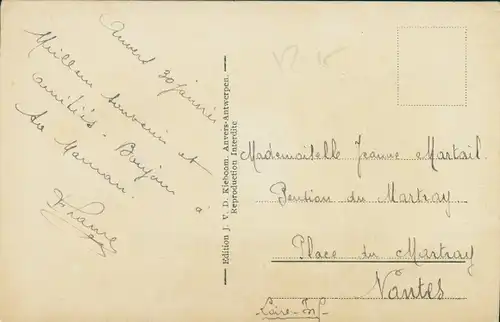 Anvers 30 janvier
Meilleur souvenir et
amitiés - Bonjour à
ta Maman.
France
Edition J. V. D. Kieboom. Anvers-Antwerpen.
Reproduction Interdite
Mademoiselle Jeanne Martail
Pension du Martray
Place du Martray
Nantes
Loire-Inf